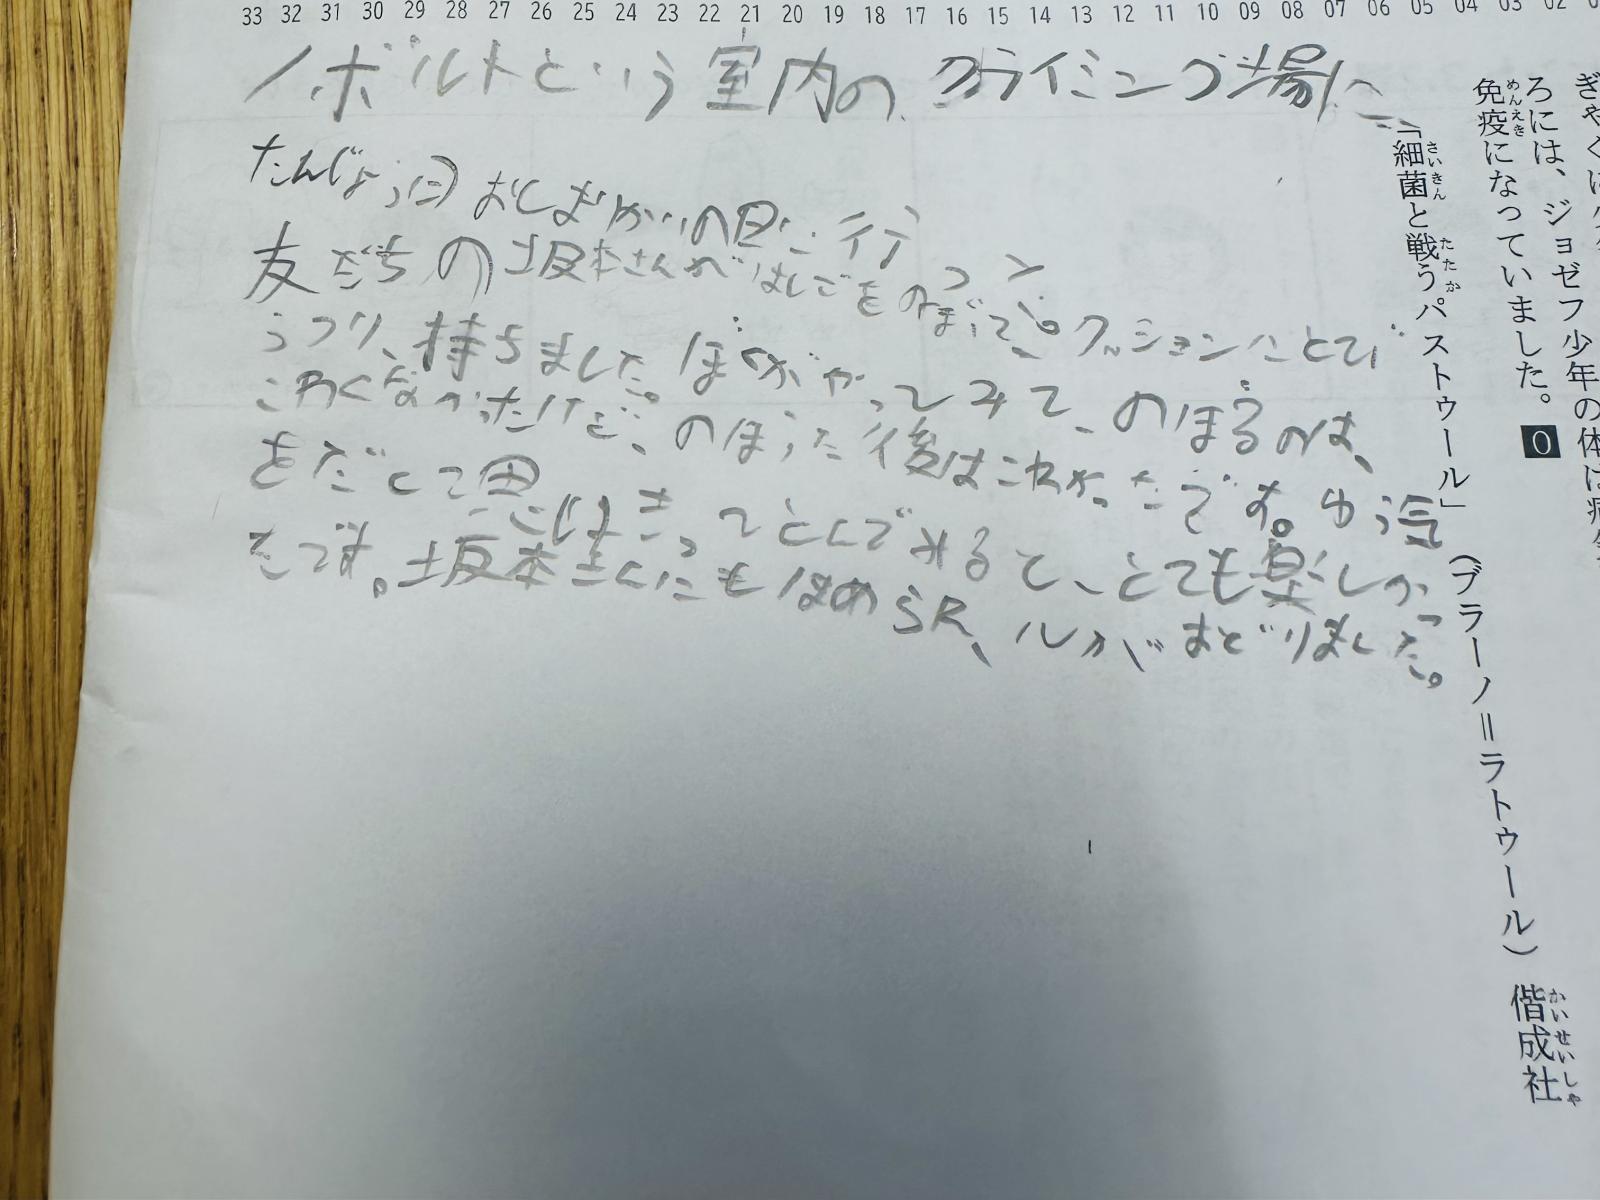 33 32 31 30 29 28 27 26 25 24 23 22 21 20 19 18 17 16 15 14 13 12 11 10 09 08 07 06 05 04 03 02
ノボルトという室内のクライミング場に
たんじょう日おしばいの日に行
って
友だちの坂本さんがはしごをのぼって、クッションにとび
うつり、持ちました。ぼくがやってみて、のぼるのは、
こわくなかったけど、のぼった後はこわかったです。ゆう気
をだして思
いきってとんでみると、とても楽しかっ
たです。坂本さんにもほめられ、心がおどりました。
ろには、ジョゼフ少年の体は
免疫になっていました。0
めんえき
「細菌と戦うパストゥール」(ブラーノ=ラトゥール) 偕成社
さいきん たたか かいせいしゃ